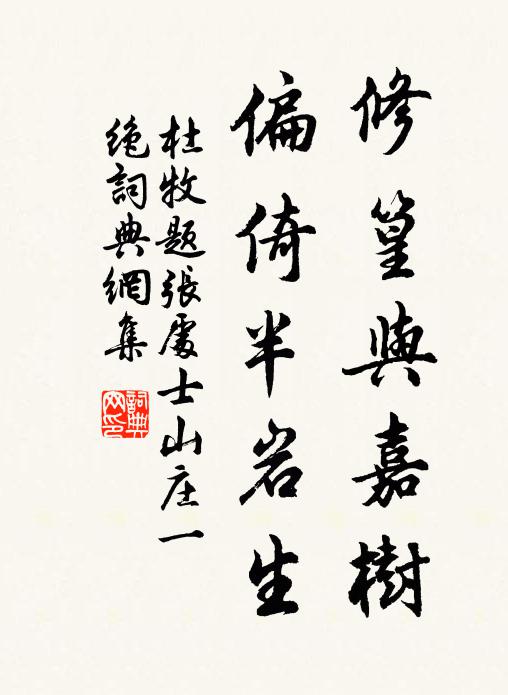 修篁與嘉樹
偏倚半岩生
杜牧題張處士山庄一
絕詞典網集
詞典网印